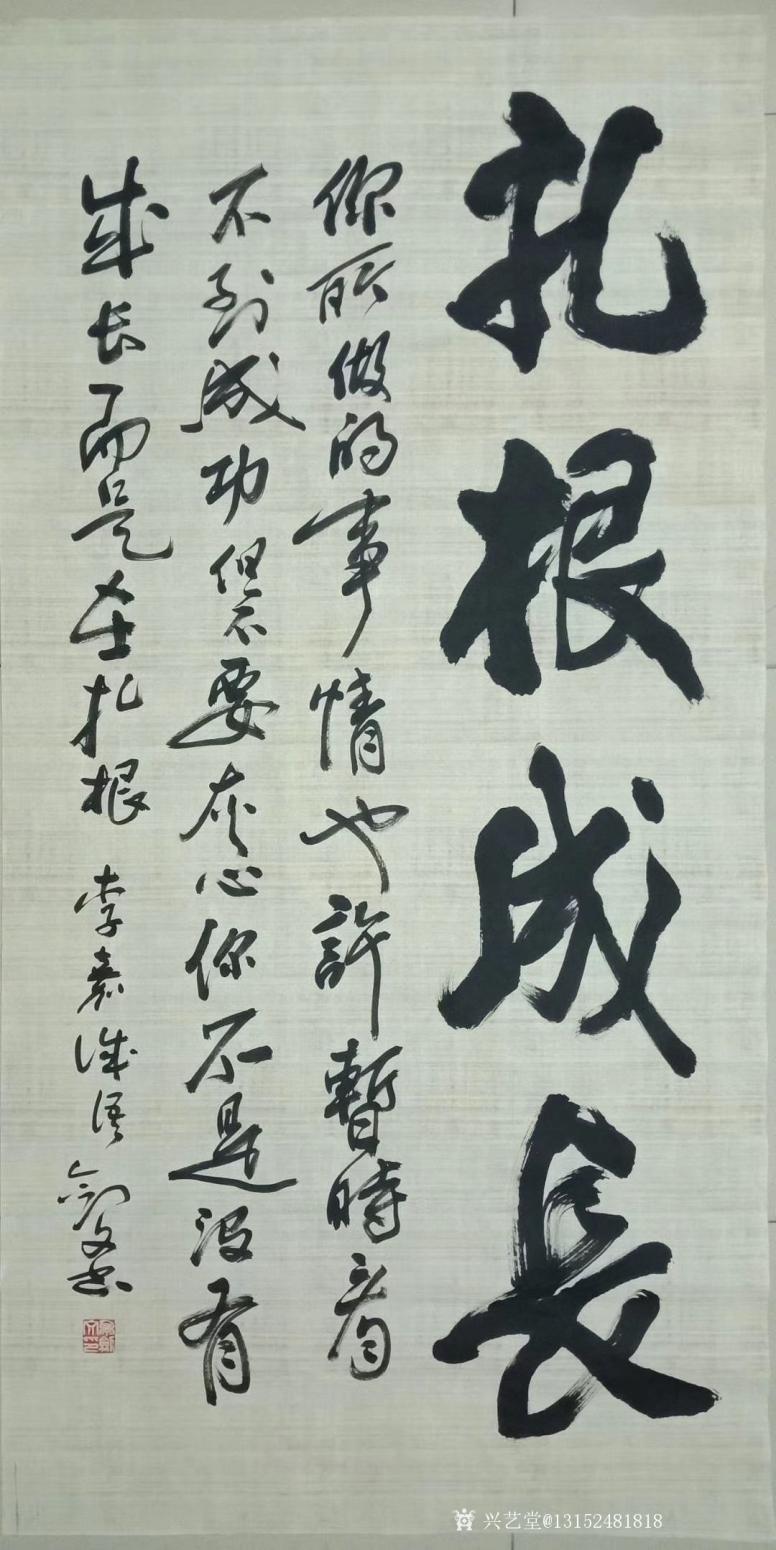 扎根成長
你所做的事情也許暫時看
不到成功但不要灰心你不是没有
成长而是在扎根 李嘉诚语 剑文书
兴艺堂@13152481818